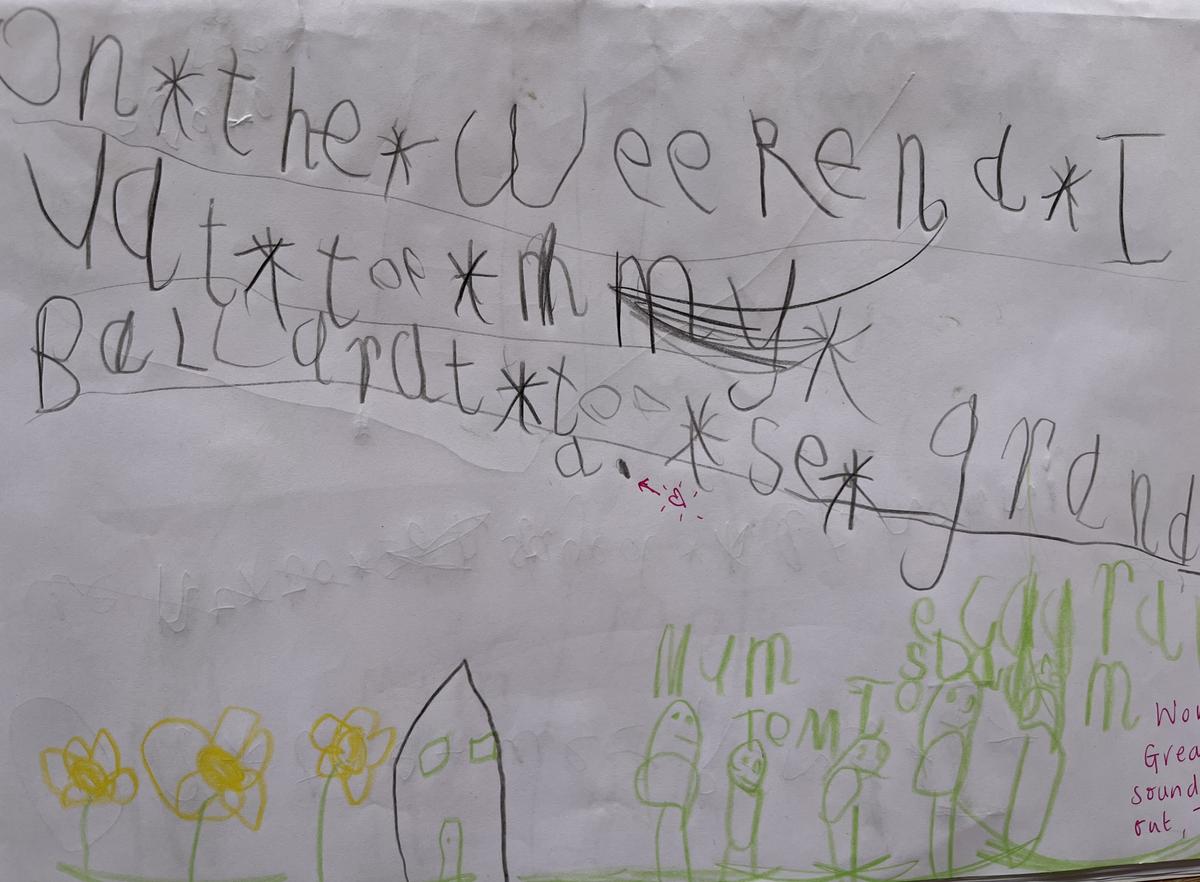 On*the*weekend*I
Vat*too*m my*
Ballarat*too*se*grand
a.
Mum
TOM
Wow
Grea
sound
out,